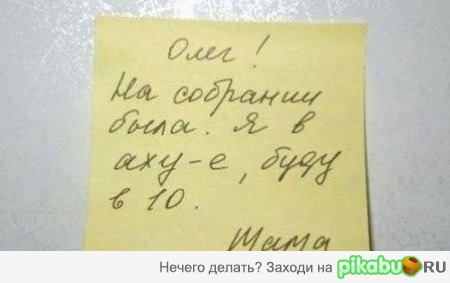 Олег!
На собрании
была. Я в
аху-е, буду
в 10.
Мама
Нечего делать? Заходи на pikabu.RU